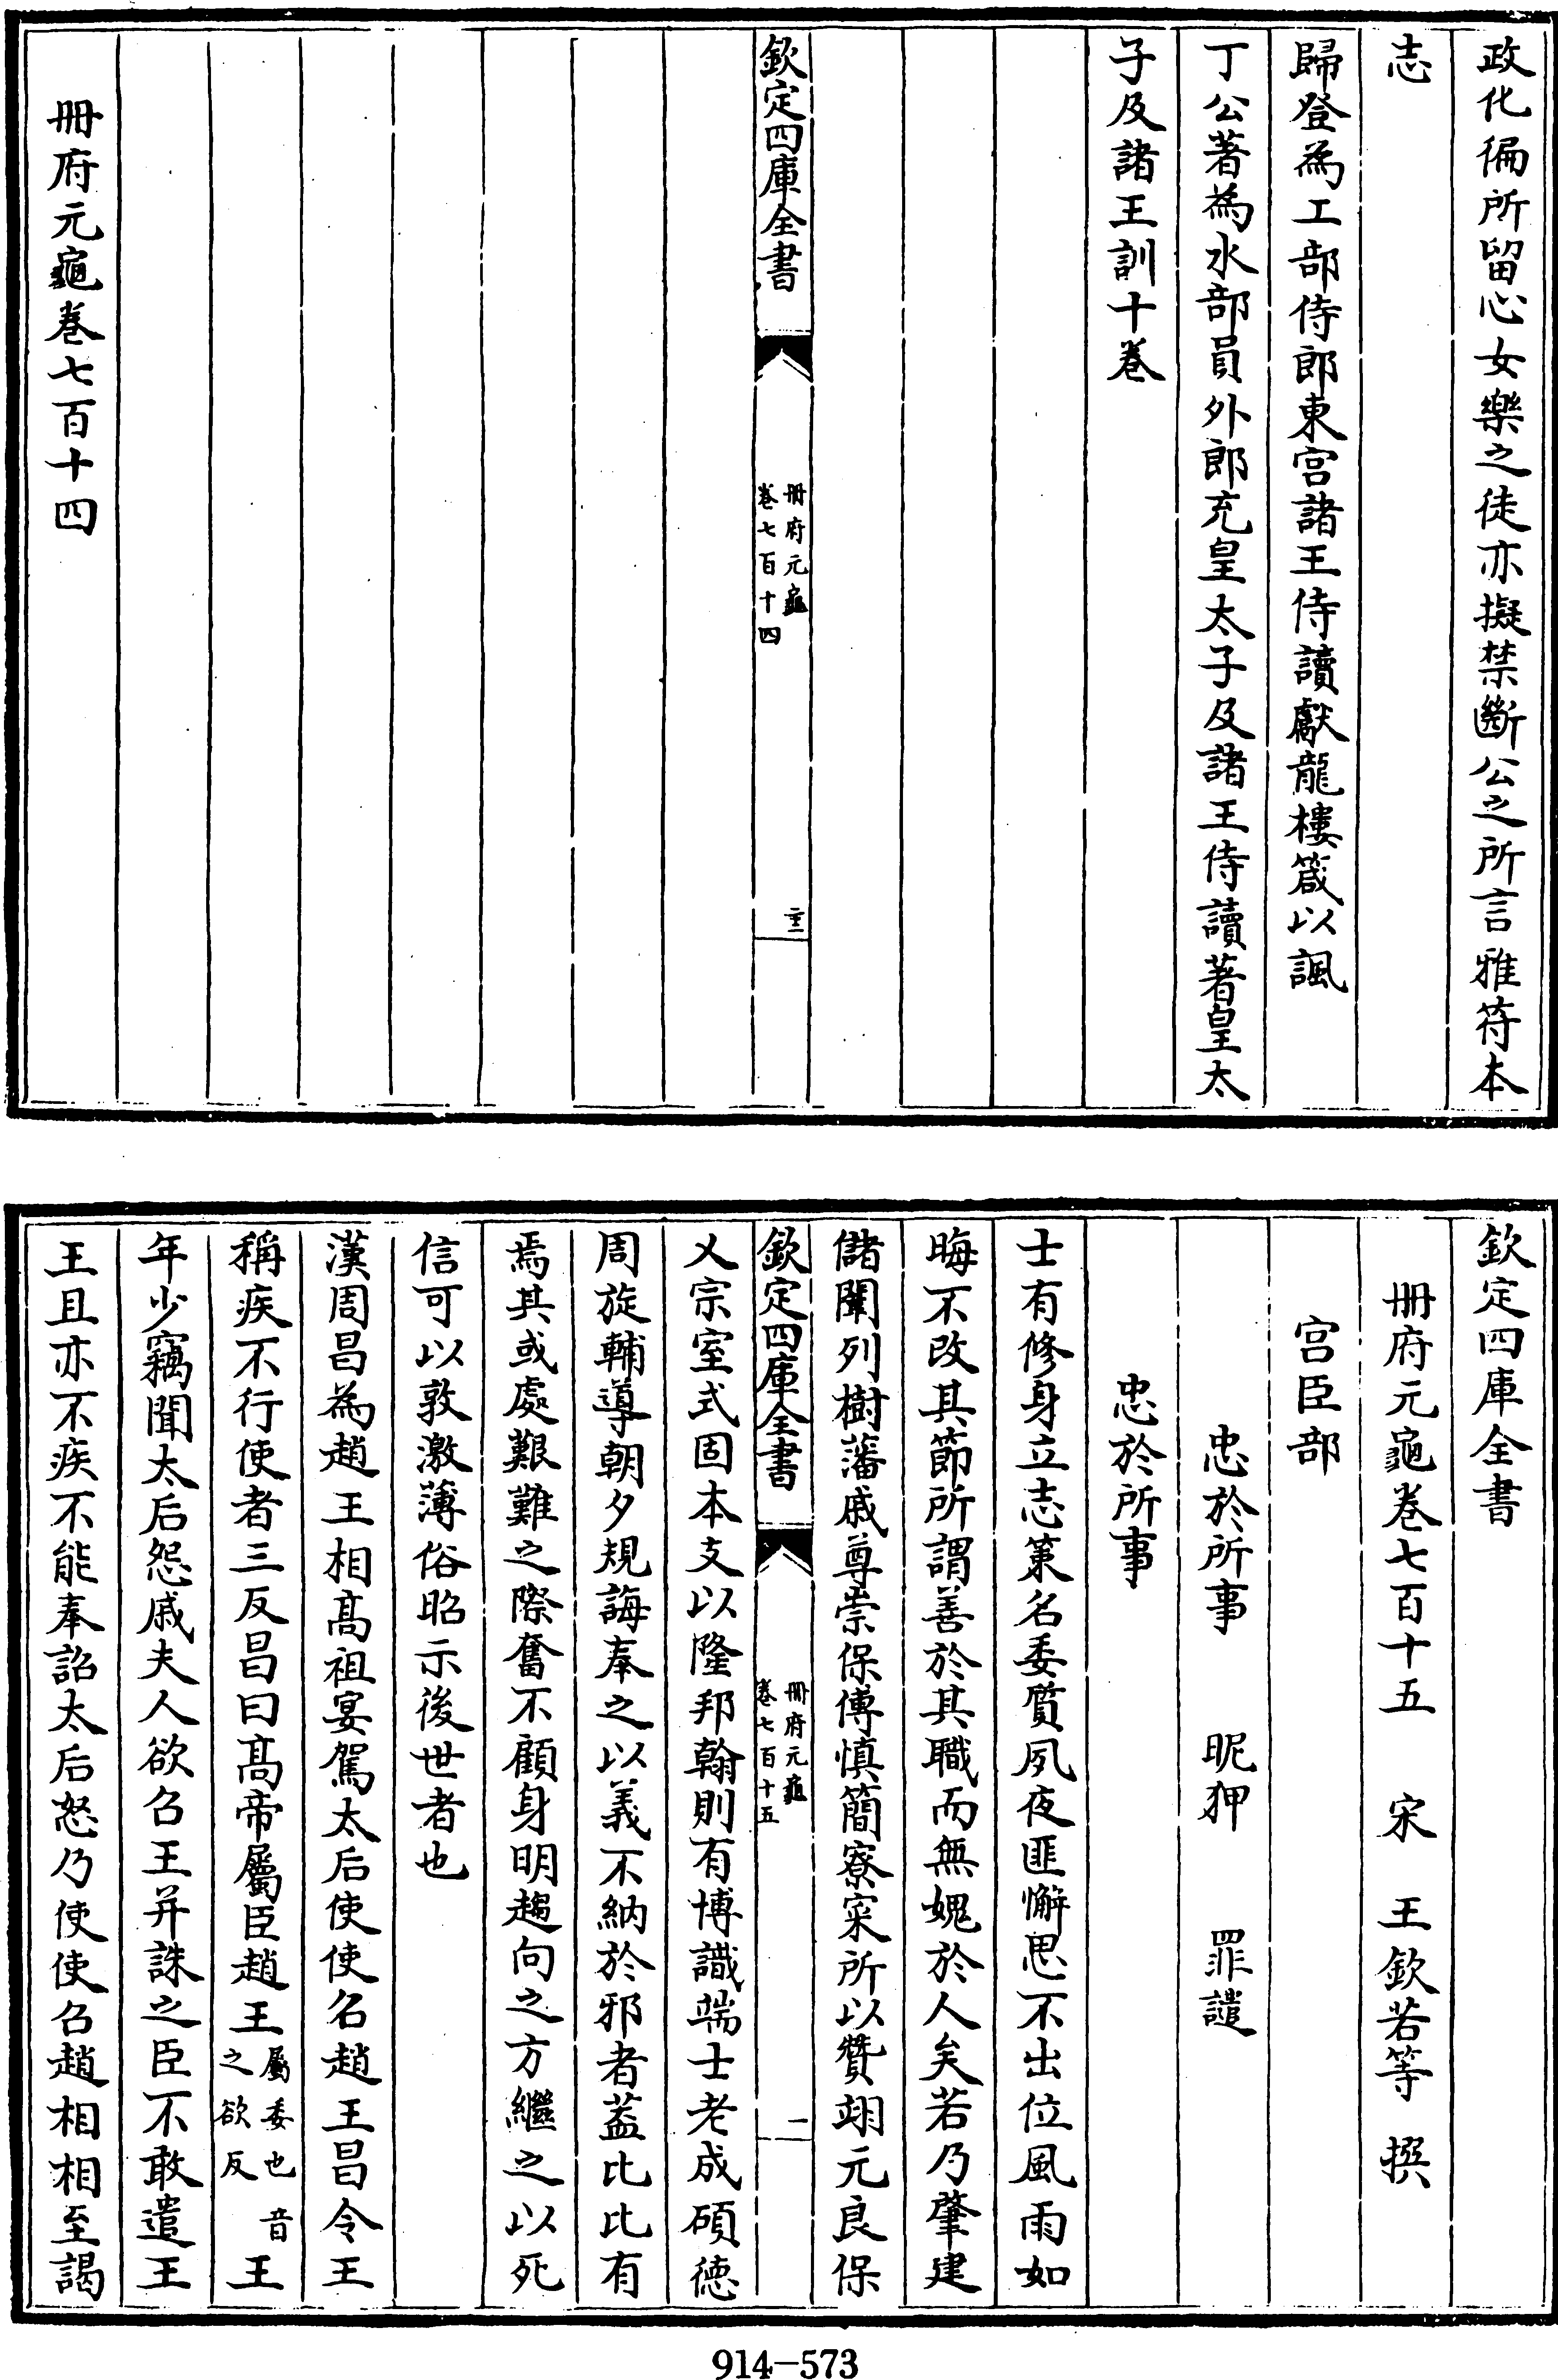 政化徧所留心女樂之徒亦擬禁斷公之所言雅符本
志
歸登為工部侍郎東宫諸王侍讀獻龍樓箴以諷
丁公著為水部員外郎充皇太子及諸王侍讀著皇太
子及諸王訓十卷
欽定四庫全書
冊府元龜
卷七百十四
冊府元龜卷七百十四
欽定四庫全書
冊府元龜卷七百十五 宋 王欽若等 撰
宫臣部
忠於所事 昵狎 罪譴
忠於所事
士有修身立志策名委質夙夜匪懈思不出位風雨如
晦不改其節所謂善於其職而無媿於人矣若乃肇建
儲闈列樹藩戚尊崇保傅慎簡寮寀所以贊翊元良保
欽定四庫全書
冊府元龜
卷七百十五
一
乂宗室式固本支以隆邦翰則有博識端士老成碩徳
周旋輔導朝夕規誨奉之以義不納於邪者葢比比有
焉其或處艱難之際奮不顧身明趨向之方繼之以死
信可以敦激薄俗昭示後世者也
漢周昌為趙王相髙祖宴駕太后使使名趙王昌令王
稱疾不行使者三反昌曰髙帝屬臣趙王屬委也音之欲反王
年少竊聞太后怨戚夫人欲召王并誅之臣不敢遣王
王且亦不疾不能奉詔太后怒乃使使召趙相相至謁
914-573